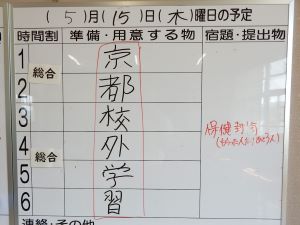 ( 5 )月( 15 )日( 木 )曜日の予定
時間割 準備・用意する物 宿題・提出物
1 京
総合
2 都
3 校
4 外
総合
5 学
6 習
連絡・その他